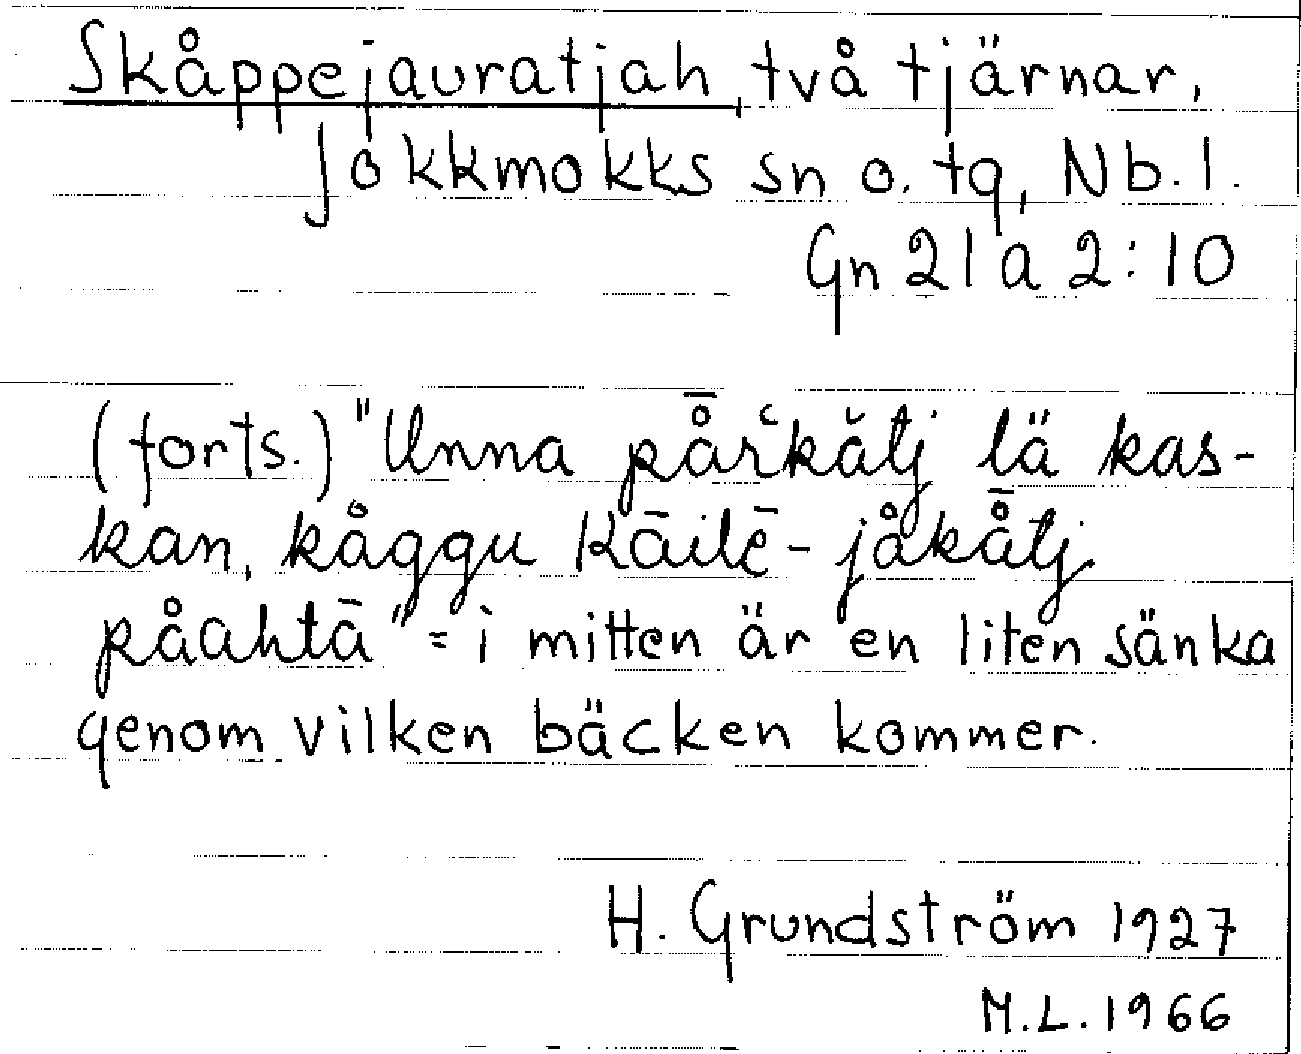 Skåppejauratjah, två tjärnar,
Jokkmokks sn o. tg, Nb. l.
Gn 21 a 2:10
(forts.) "Unna på̄rʿkătj lä kas-
kan, kåggu Kāilē-jåkå̄tj
påahtā" = i mitten är en liten sänka
genom vilken bäcken kommer.
H. Grundström 1927
M.L. 1966